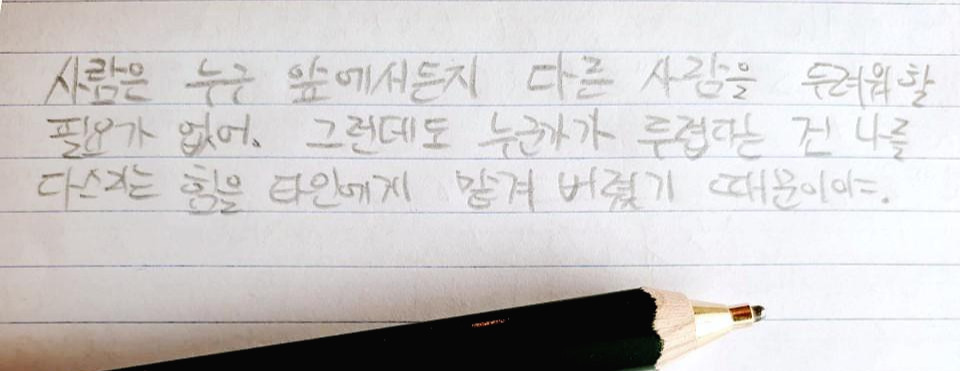 사람은 누구 앞에서든지 다른 사람을 두려워할
필요가 없어. 그런데도 누군가가 두렵다는 건 나를
다스리는 힘을 타인에게 맡겨 버렸기 때문이야.